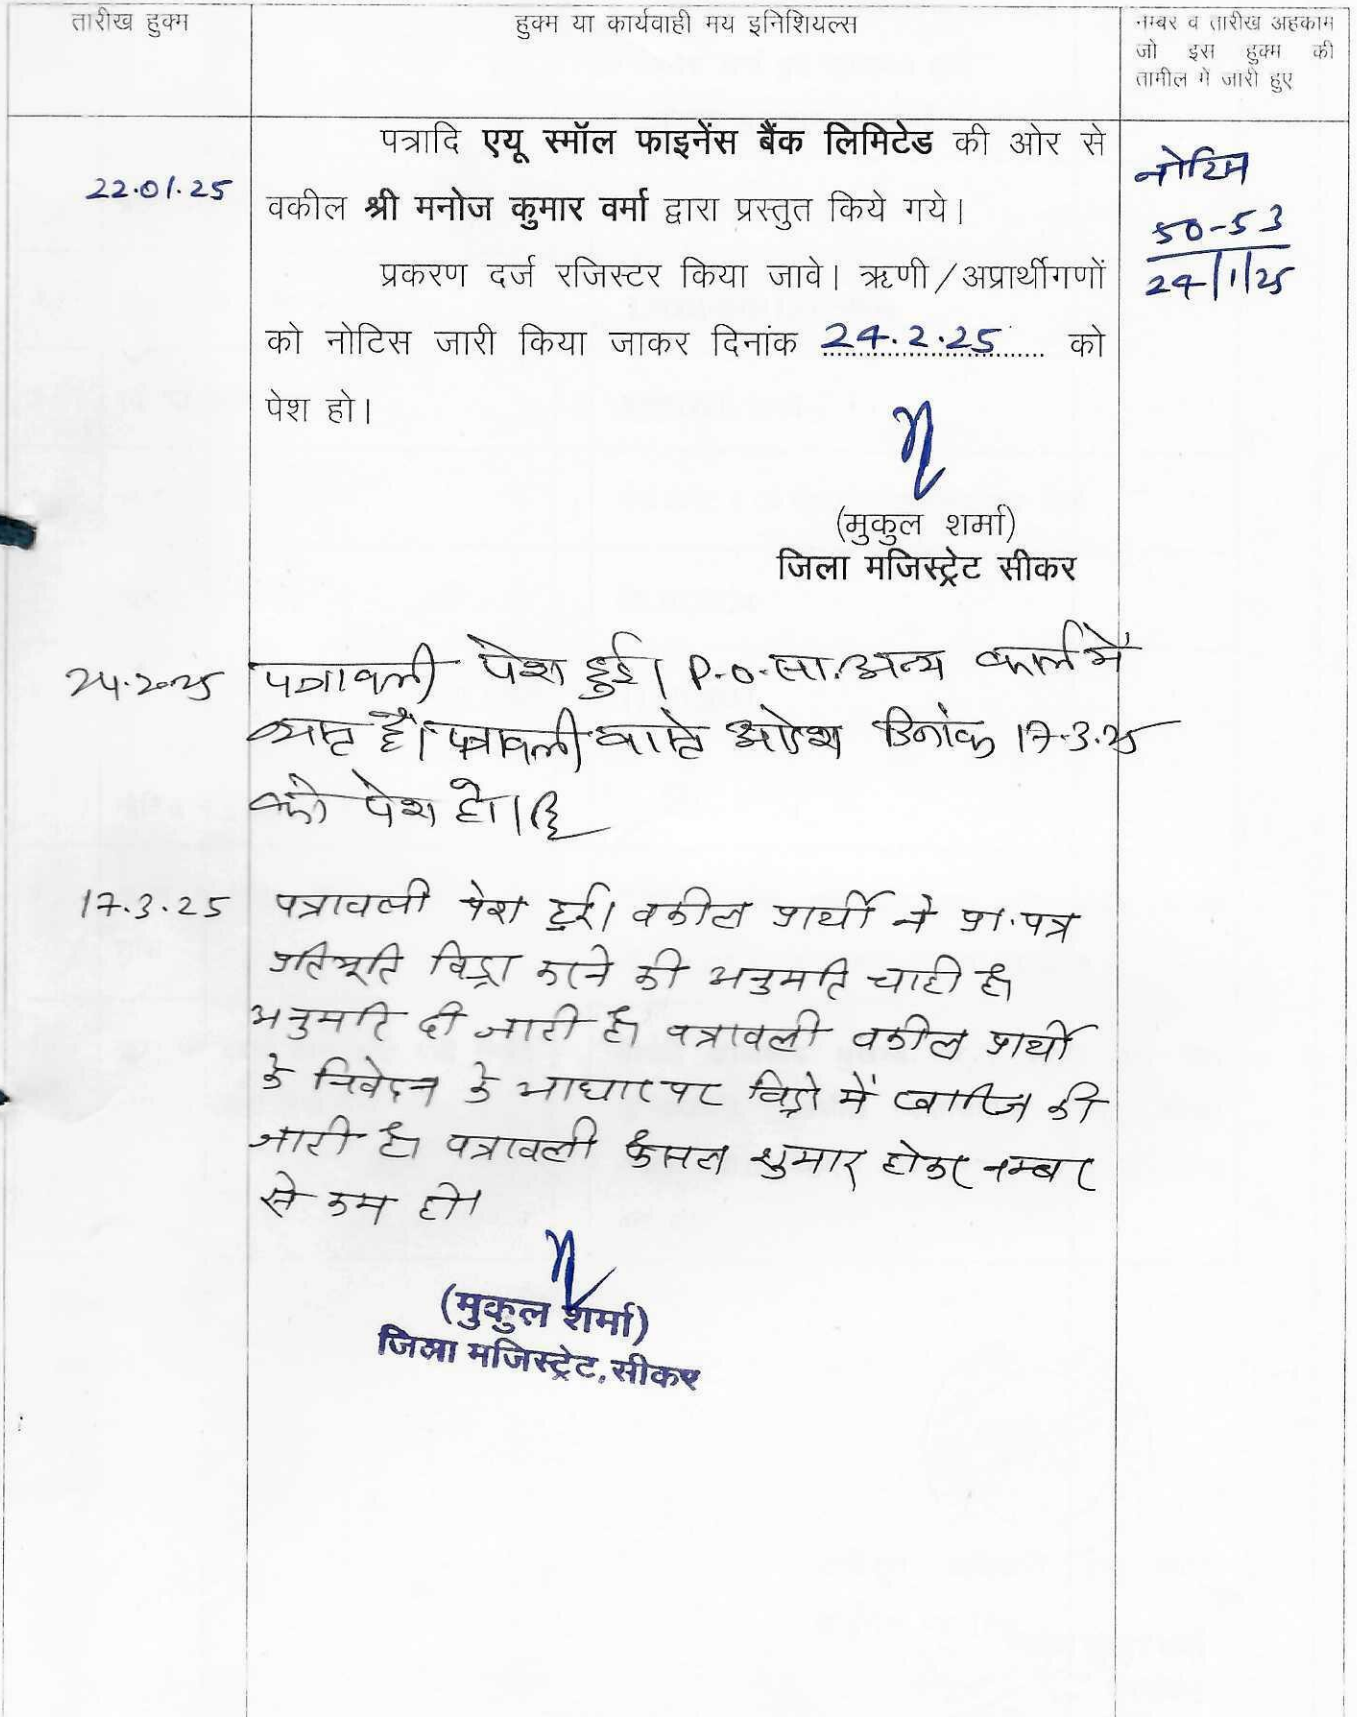 तारीख हुक्म
हुक्म या कार्यवाही मय इनिशियल्स
नम्बर व तारीख अहकाम
जो इस हुक्म की
तामील में जारी हुए
22.01.25
पत्रादि एयू स्मॉल फाइनेंस बैंक लिमिटेड की ओर से
वकील श्री मनोज कुमार वर्मा द्वारा प्रस्तुत किये गये।
प्रकरण दर्ज रजिस्टर किया जावे। ऋणी/अप्रार्थीगणों
को नोटिस जारी किया जाकर दिनांक 24.2.25 को
पेश हो।
नोटिस
50-53
24/1/25
(मुकुल शर्मा)
जिला मजिस्ट्रेट सीकर
24.2.25
पत्रावली पेश हुई। P.O.सा. अन्य कार्य में
व्यस्त हैं। पत्रावली वास्ते आदेश दिनांक 17.3.25
को पेश हो।
17.3.25
पत्रावली पेश हुई। वकील प्रार्थी ने प्रा.पत्र
प्रतिभूति विड्रा करने की अनुमति चाही है।
अनुमति दी जाती है। पत्रावली वकील प्रार्थी
के निवेदन के आधार पर विड्रो में खारिज की
जाती है। पत्रावली फैसल शुमार होकर नम्बर
से कम हो।
(मुकुल शर्मा)
जिला मजिस्ट्रेट, सीकर